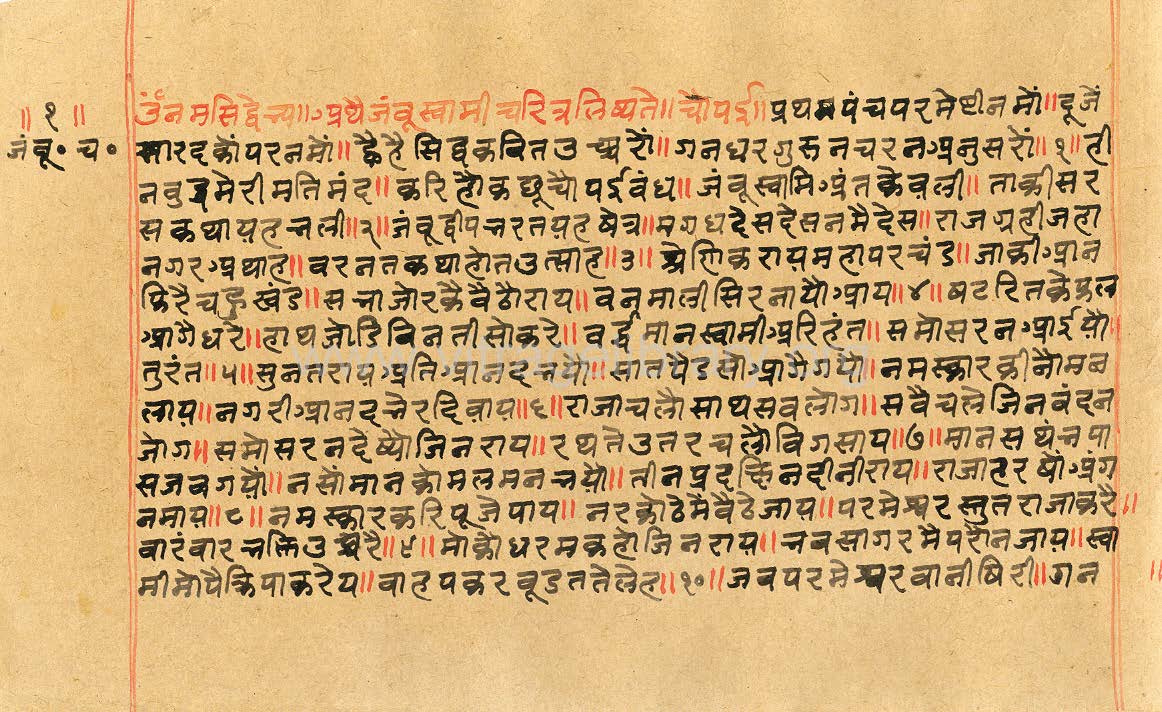 ॥ १ ॥
जंबू॰ च॰
ॐनमसिद्धेभ्यः॥अथैजंबूस्वामीचरित्रलिष्यते॥चौपई॥प्रथमपंचपरमेष्टीनमों॥दूजें
सारदकोंपरनमों॥ह्वैहैसिद्धकवितउच्चरों॥गनधरगुरुनचरनअनुसरों॥१॥ही
नबुद्धमेरीमतिमंद॥करिहोंकछूचौपईबंध॥जंबूस्वामिअंतकेवली॥ताकीसर
सकथायहभली॥२॥जंबूद्वीपभरतयहषेत्र॥मगधदेसदेसनमैदेस॥राजग्रहीजहा
नगरअथाह॥बरनतकथाहोतउत्साह॥३॥श्रेणिकरायमहापरचंड॥जाकीआन
फिरैचहुखंड॥सभाजोरकैबैठौराय॥वनमालीसिरनायौआय॥४॥षटरितकेफल
आगैधरे॥हाथजोडिबिनतीसोकरे॥वर्द्धमानस्वामीअरिहंत॥समोसरनआईयौ
तुरंत॥५॥सुनतरायअतिआनदभयौ॥सातपैडसोआगैगयौ॥नमस्कारकीनौमब
लाय॥नगरीआनदभेरदिवाय॥६॥राजाचलौसाथसबलोग॥सवैचलेजिनबंदन
जोग॥समोसरनदेष्यौजिनराय॥रथतेउतरचलौविगसाय॥७॥मानसथंभपा
सजबगयौ॥नसोंमानकोमलमनभयौ॥तीनप्रदक्षिनदीनीराय॥राजाहरषौअंग
नमाय॥८॥नमस्कारकरिपूजेपाय॥नरकोठेमैबैठेजाय॥परमेश्वरस्तुतराजाकरै॥
बारंबारभक्तिउच्चरै॥९॥मोकोधरमकहोजिनराय॥भवसागरमैपरौनजाय॥स्वा
मीमोपैक्रिपाकरेय॥बाहपकरबूडततेलेह॥१०॥जबपरमेश्वरवानीषिरी॥गन
www.vitragelibrary.org